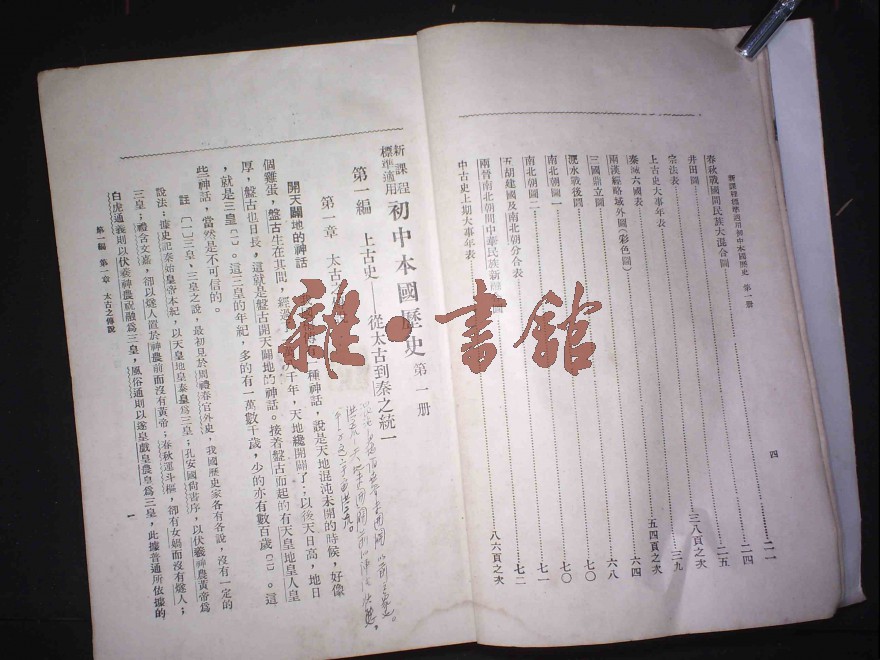 新課程標準適用初中本國歷史 第一册
四
春秋戰國間民族大混合圖 二一
井田圖 二四
宗法表 二五
上古史大事年表 三八頁之次
秦滅六國表 三九
兩漢經略域外圖(彩色圖) 五四頁之次
三國鼎立圖 六四
淝水戰後圖 六八
南北朝圖一 七〇
南北朝圖二 七〇
五胡建國及南北朝分合表 七一
兩晉南北朝間中華民族新 圖 七二
中古史上期大事年表 八六頁之次
新課程標準適用 初中本國歷史 第一册
第一編 上古史——從太古到秦之統一
第一章 太古之
開天闢地的神話
種神話,說是天地混沌未開的時候,好像
個雞蛋,盤古生在其間,經過 千年,天地纔開闢了;以後天日高,地日
厚,盤古也日長,這就是盤古開天闢地的神話。接着盤古而起的有天皇地皇人皇
,就是三皇〔一〕。這三皇的年紀,多的有一萬數千歲,少的亦有數百歲〔二〕。這
些神話,當然是不可信的。
註〔一〕三皇,三皇之說,最初見於周禮春官外史,我國歷史家各有各說,沒有一定的
說法:據史記秦始皇帝本紀,以天皇地皇泰皇爲三皇;孔安國尙書序,以伏羲神農黃帝爲
三皇;禮含文嘉,卻以燧人置於神農前而沒有黃帝;春秋運斗樞,卻有女媧而沒有燧人;
白虎通義則以伏羲神農祝融爲三皇,風俗通則以遂皇戲皇農皇爲三皇,此據普通所依據的
第一編 第一章 太古之傳說
一
雜·書館